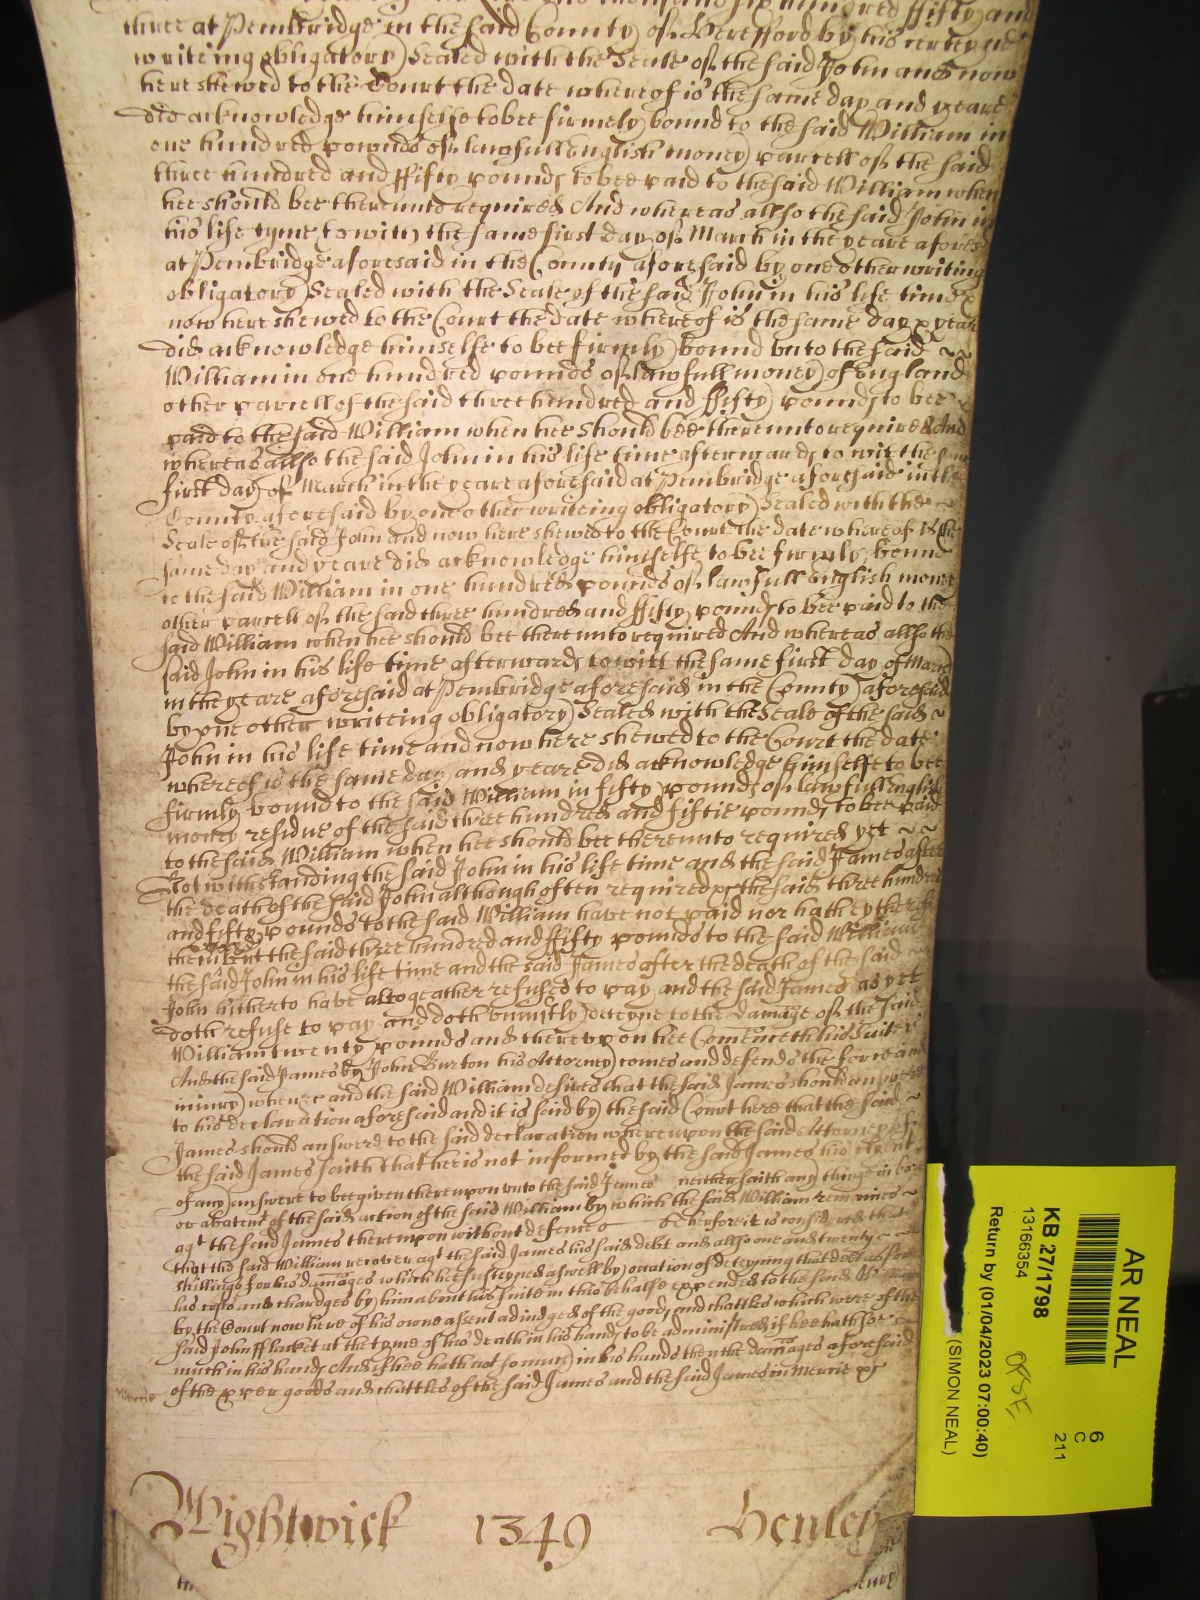 one thousand six hundred ffifty and
three at Pembridge in the said County of Herefford by his certeyne
writeing obligatory Sealed with the Seale of the said John and now
here shewed to the Court the date whereof is the same day and yeare
did acknowledge himselfe to bee firmely bound to the said William in
one hundred pounds of lawfull English money parcell of the said
three hundred and ffifty pounds to bee paid to the said William when
hee should bee thereunto required And whereas allso the said John in
his life tyme to witt the same first day of March in the yeare afores
at Pembridge aforesaid in the County aforesaid by one other writing
obligatory Sealed with the Seale of the said John in his life time &
now here shewed to the Court the date whereof is the same day & yeare
did acknowledge himselfe to bee firmly bound vnto the said
William in one hundred pounds of lawfull money of England
other parcell of the said three hundred and ffifty pounds to bee
paid to the said William when hee should bee thereunto required And
whereas allso the said John in his life time afterwards to witt the same
first day of March in the yeare aforesaid at Pembridge aforesaid in the
County aforesaid by one other writeing obligatory Sealed with the
Seale of the said John and now here shewed to the Court the date whereof is the
same day and yeare did acknowledge himselfe to bee firmly bound
to the said William in one hundred pounds of lawfull English money
other parcell of the said three hundred and ffifty pounds to bee paid to the
said William when hee should bee thereunto required And whereas allso the
said John in his life time afterwards to witt the same first day of March
in the yeare aforesaid at Pembridge aforesaid in the County aforesaid
by one other writeing obligatory Sealed with the Seale of the said
John in his life time and now here shewed to the Court the date
whereof is the same day and yeare did acknowledge himselfe to bee
firmly bound to the said William in fifty pounds of lawfull English
money residue of the said three hundred and fiftie pounds to bee paid
to the said William when hee should bee thereunto required yet
Notwithstanding the said John in his life time and the said James after
the death of the said John although often required &c the said three hundred
and fifty pounds to the said William have not paid nor hath eyther of
them payd the said three hundred and ffifty pounds to the said William
the said John in his life time and the said James after the death of the said
John hitherto have altogeather refused to pay and the said James as yet
doth refuse to pay and doth vniustly deteyne to the damage of the said
William twenty pounds and therevpon hee Comenceth his suite &c
And the said James by John Burton his Attorney comes and defends the force and
iniury when &c and the said William desires that the said James should answere
to his declaration aforesaid and it is said by the said Court here that the said
James should answere to the said declaration whereupon the said Attorney of
the said James saith that hee is not informed by the said James his Clyent
of any answere to bee given therevpon vnto the said James neither saith any thing in barr
or abatemt of the said action of the said William by which the said William remaines
agt the said James therevpon without defence Therefore it is considered that
that the said William recover agt the said James his said debt and allso one and twenty
shillings for his damages which hee susteyned aswell by occation of deteyning that debt as for
his costs and chardges by him about his suite in this behalfe expended to the said William
by the Court now here of his owne assent adiudged of the goods and chattles which were of the
said John ffluckett at the tyme of his death in his hands to be administred if hee hath soe
much in his hands And if hee hath not so much in his hands then the damages aforesaid
of the proper goods and chattles of the said James and the said James in Mercie &c
Mercie
Wightwick 1349 Henley
AR NEAL
6
C
211
KB 27/1798
13166354
Return by (01/04/2023 07:00:40)
(SIMON NEAL)